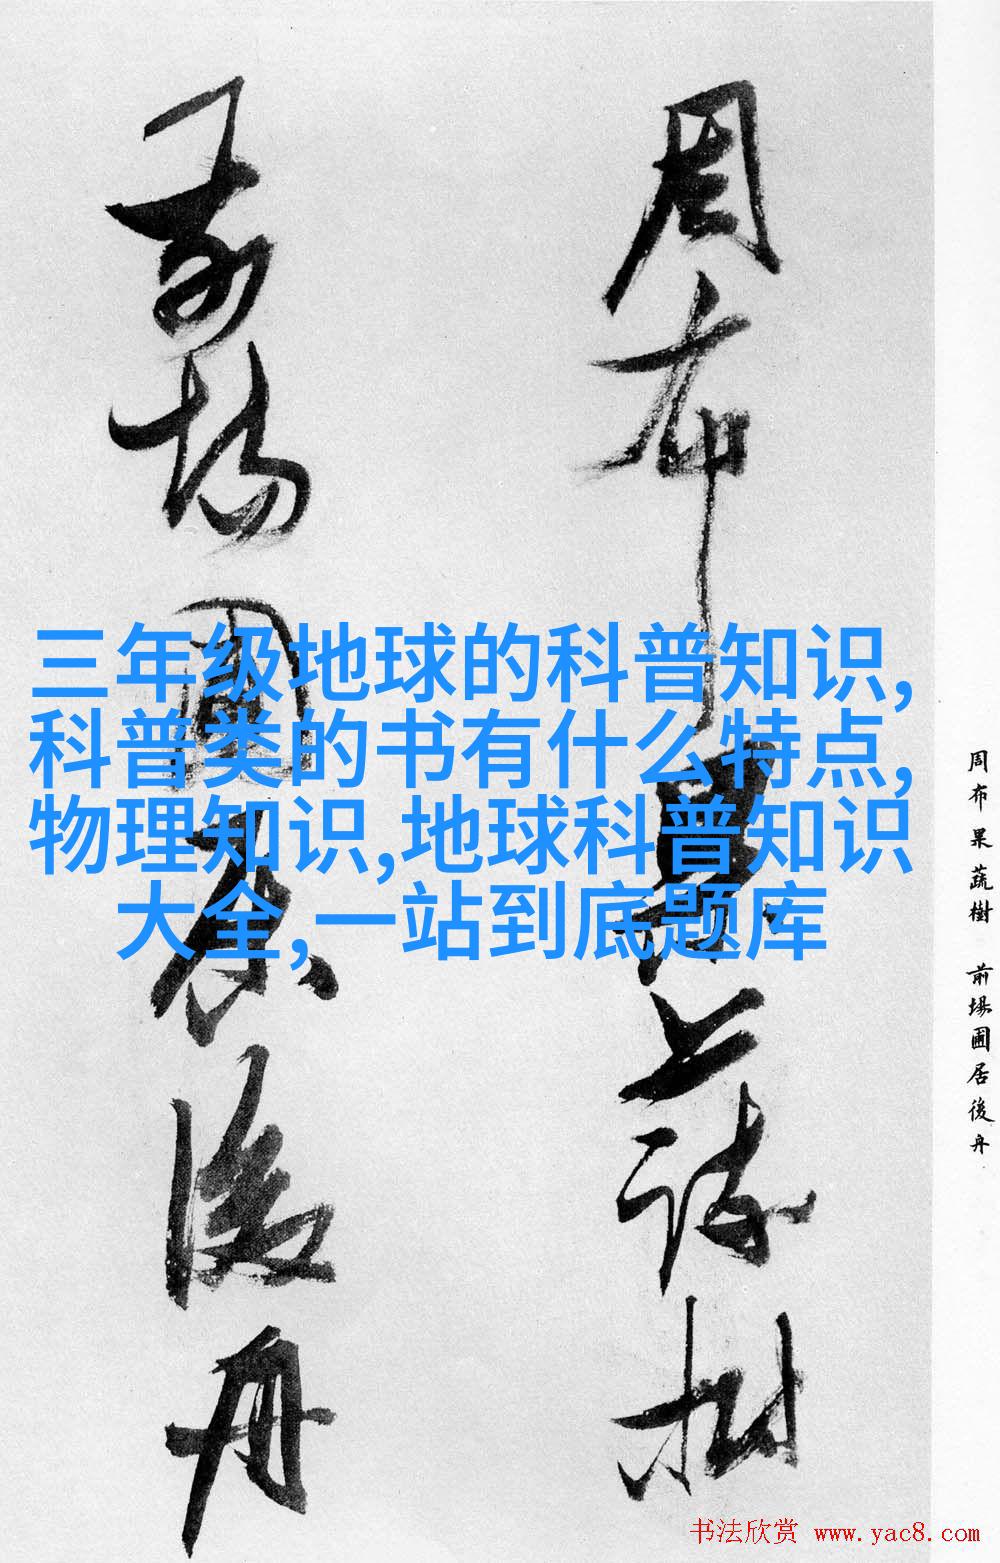 周布果蔬樹
前場圃居後舟
三年级地球的科普知识,
科普类的书有什么特点,
物理知识,地球科普知识
大全,一站到底题库
周布果蔬樹 前場圃居後舟
书法欣赏 www.yac8.com